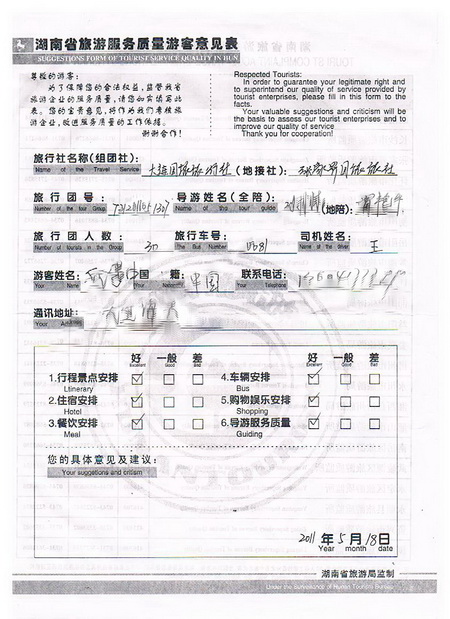 湖南省旅游服务质量游客意见表
SUGGESTIONS FORM OF TOURIST SERVICE QUALITY IN HUN
尊敬的游客：
为了保障您的合法权益，监督我省
旅游企业的服务质量，请您如实填写此
表。您的宝贵意见，将作为我们考核旅
游企业、改进服务质量的工作依据。
谢谢合作！
Respected Tourists:
In order to guarantee your legitimate right and
to superintend our quality of service provided by
tourist enterprises, please fill in this form to the
facts.
Your valuable suggestions and criticism will be
the basis to assess our tourist enterprises and to
improve our quality of service
Thank you for cooperation!
旅行社名称(组团社)： (地接社)：
Name of the Travel Service
旅行团号： 导游姓名(全陪)： (地陪)：
Number of the tour Group Name of the tour guide
旅行团人数： 30 旅行车号： 司机姓名： 王
Number of tourists in the Group The Bus Number Name of the driver
游客姓名： 国 籍： 中国 联系电话：
Your Name Your Nationality Your Telephone
通讯地址：
Your Address
好 一般 差 好 一般 差
Excellent Good Bad Excellent Good Bad
1.行程景点安排 4.车辆安排
Ltinerary Bus
2.住宿安排 5.购物娱乐安排
Hotel Shopping
3.餐饮安排 6.导游服务质量
Meal Guiding
您的具体意见及建议：
Your suggetions and critism
2011 年 5 月 18 日
Year month date
湖南省旅游局监制
Under the Surveillance of Hunan Tourism Bureau